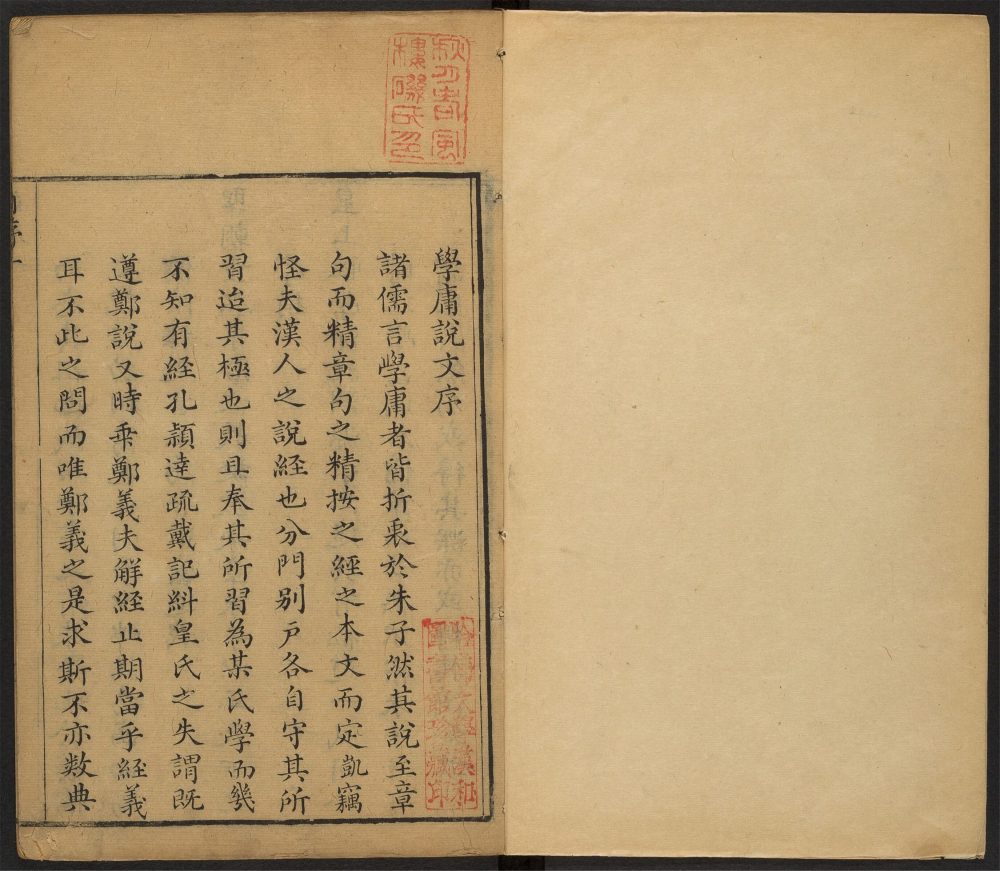 學庸說文序
諸儒言學庸者皆折衷於朱子然其說至章
句而精章句之精按之經之本文而定凱竊
怪夫漢人之說經也分門別戶各自守其所
習迨其極也則且奉其所習為某氏學而幾
不知有經孔穎達疏戴記糾皇氏之失謂既
遵鄭說又時乗鄭義夫解經止期當乎經義
耳不此之問而唯鄭義之是求斯不亦數典
秋月春風
樓磯氏印
哈佛大學漢和
圖書館珍藏印